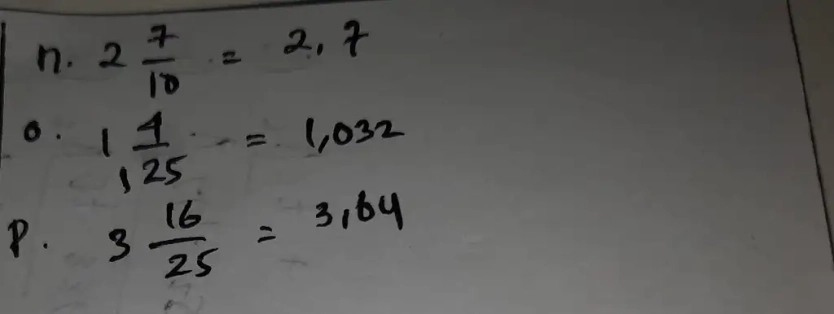 n. 2 7/10 = 2,7
o. 1 4/125 = 1,032
p. 3 16/25 = 3,64